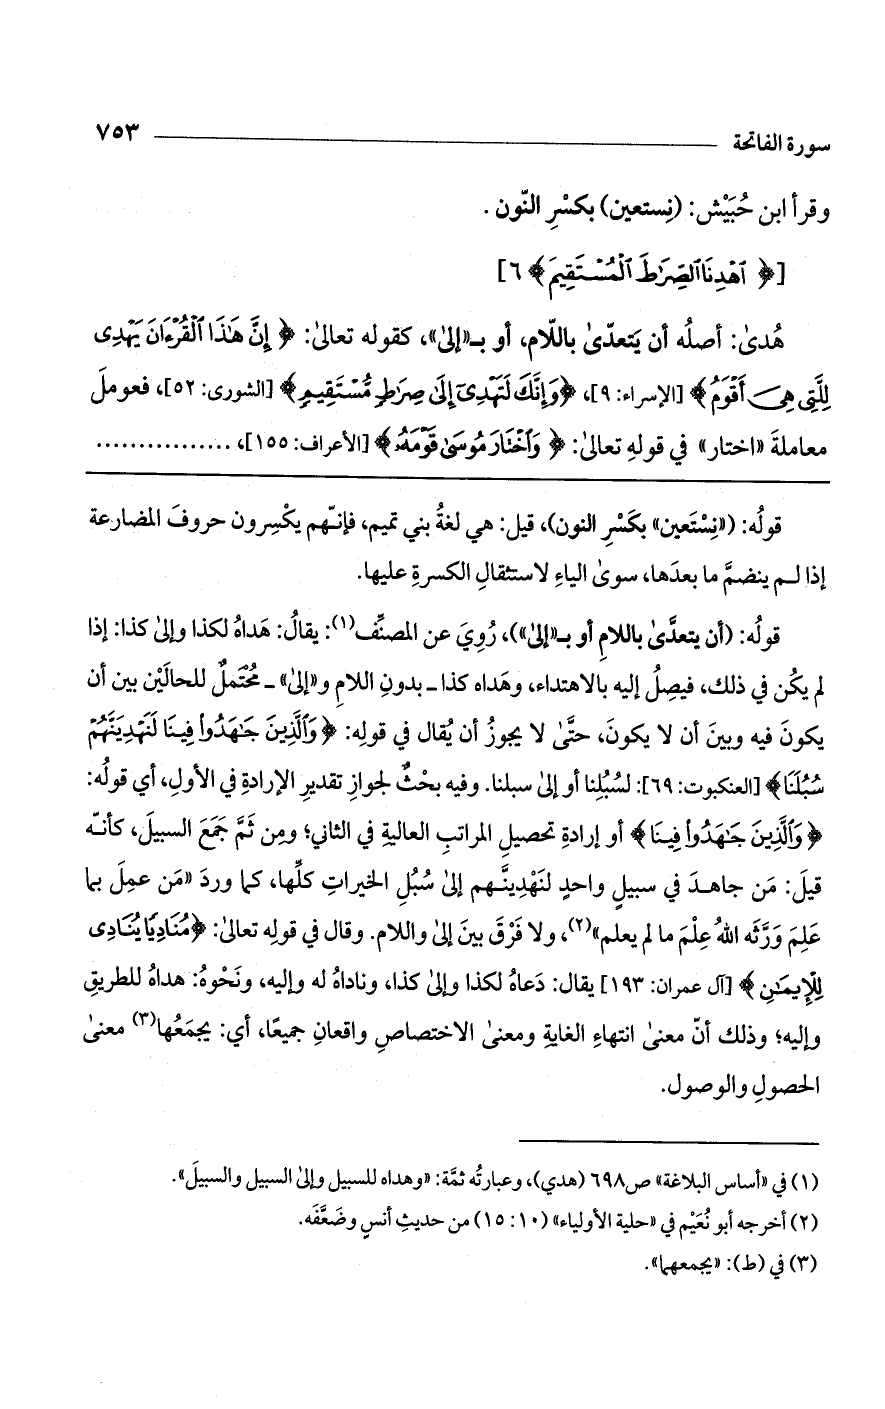 سورة الفاتحة ٧٥٣
وقرأ ابن حُبَيْش: (نِستعين) بكسْرِ النّون.
[﴿ ٱهْدِنَا ٱلصِّرَٰطَ ٱلْمُسْتَقِيمَ ﴾ ٦]
هُدىٰ: أصلُه أن يَتعدّىٰ باللّام، أو بـ«إلىٰ»، كقوله تعالىٰ: ﴿ إِنَّ هَٰذَا ٱلْقُرْءَانَ يَهْدِى
لِلَّتِى هِىَ أَقْوَمُ ﴾ [الإسراء: ٩]، ﴿وَإِنَّكَ لَتَهْدِىٓ إِلَىٰ صِرَٰطٍ مُّسْتَقِيمٍ﴾ [الشورى: ٥٢]، فعوملَ
معاملةَ «اختار» في قولهِ تعالىٰ: ﴿ وَٱخْتَارَ مُوسَىٰ قَوْمَهُۥ ﴾ [الأعراف: ١٥٥]، ................
قولُه: («نِسْتَعين» بكَسْرِ النون)، قيل: هي لغةُ بني تميم، فإنّهم يكْسِرون حروفَ المضارعة
إذا لـم ينضمَّ ما بعدَها، سوىٰ الياءِ لاستثقالِ الكسرةِ عليها.
قولُه: (أن يتعدَّىٰ باللامِ أو بـ«إلىٰ»)، رُوِيَ عن المصنِّف(١): يقالُ: هَداهُ لكذا وإلىٰ كذا: إذا
لم يكُن في ذلك، فيصِلُ إليه بالاهتداء، وهَداه كذا ـ بدونِ اللامِ و«إلىٰ» ـ مُحْتَمِلٌ للحالَيْن بين أن
يكونَ فيه وبينَ أن لا يكونَ، حتَّىٰ لا يجوزُ أن يُقال في قولِه: ﴿وَٱلَّذِينَ جَٰهَدُوا۟ فِينَا لَنَهْدِيَنَّهُمْ
سُبُلَنَا﴾ [العنكبوت: ٦٩]: لسُبُلِنا أو إلىٰ سبلنا. وفيه بحْثٌ لجوازِ تقديرِ الإرادةِ في الأولِ، أي قولُه:
﴿وَٱلَّذِينَ جَٰهَدُوا۟ فِينَا﴾ أو إرادةِ تحصيلِ المراتبِ العالية في الثاني؛ ومِن ثَمَّ جَمَعَ السبيلَ، كأنّه
قيلَ: مَن جاهـدَ في سبيلٍ واحدٍ لنَهْدِينَّـهم إلىٰ سُبُلِ الخيراتِ كلِّها، كما وردَ «مَن عمِلَ بما
عَلِمَ وَرَّثَه اللهُ عِلْمَ ما لم يعلم»(٢)، ولا فَرْقَ بينَ إلىٰ واللام. وقال في قولِه تعالىٰ: ﴿مُنَادِيًا يُنَادِى
لِلْإِيمَٰنِ ﴾ [آل عمران: ١٩٣] يقال: دَعاهُ لكذا وإلىٰ كذا، وناداهُ له وإليه، ونَحْوهُ: هداهُ للطريقِ
وإليه؛ وذلك أنّ معنىٰ انتهاءِ الغايةِ ومعنىٰ الاختصاصِ واقعانِ جميعًا، أي: يجمَعُها(٣) معنىٰ
الحصولِ والوصول.
(١) في «أساس البلاغة» ص٦٩٨ (هدي)، وعبارتُه ثمَّة: «وهداه للسبيل وإلىٰ السبيل والسبيلَ».
(٢) أخرجه أبو نُعَيْم في «حلية الأولياء» (١٠: ١٥) من حديثِ أنسٍ وضَعَّفَه.
(٣) في (ط): «يجمعهما».